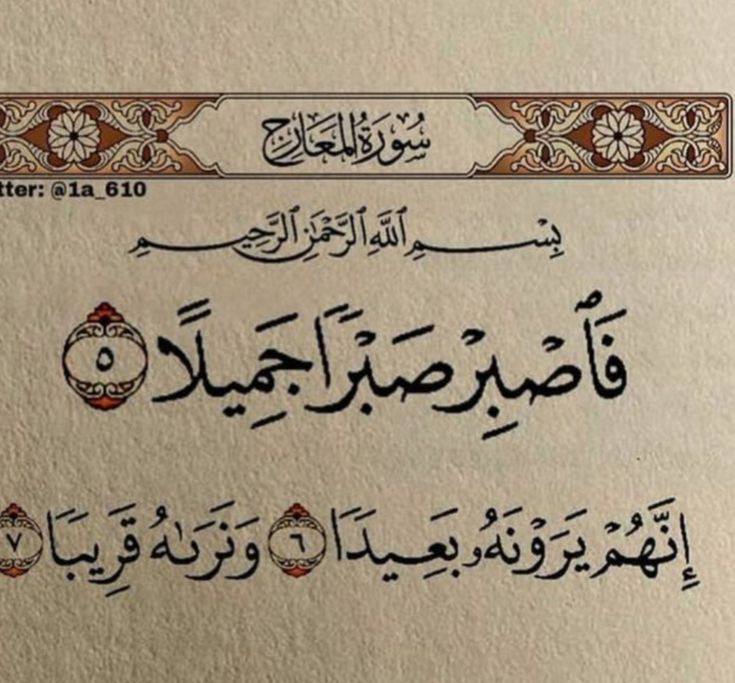 سُورَةُ المَعَارِجِ
tter: @1a_610
بِسْمِ ٱللَّهِ ٱلرَّحْمَٰنِ ٱلرَّحِيمِ
فَٱصْبِرْ صَبْرًا جَمِيلًا ٥
إِنَّهُمْ يَرَوْنَهُۥ بَعِيدًا ٦ وَنَرَىٰهُ قَرِيبًا ٧